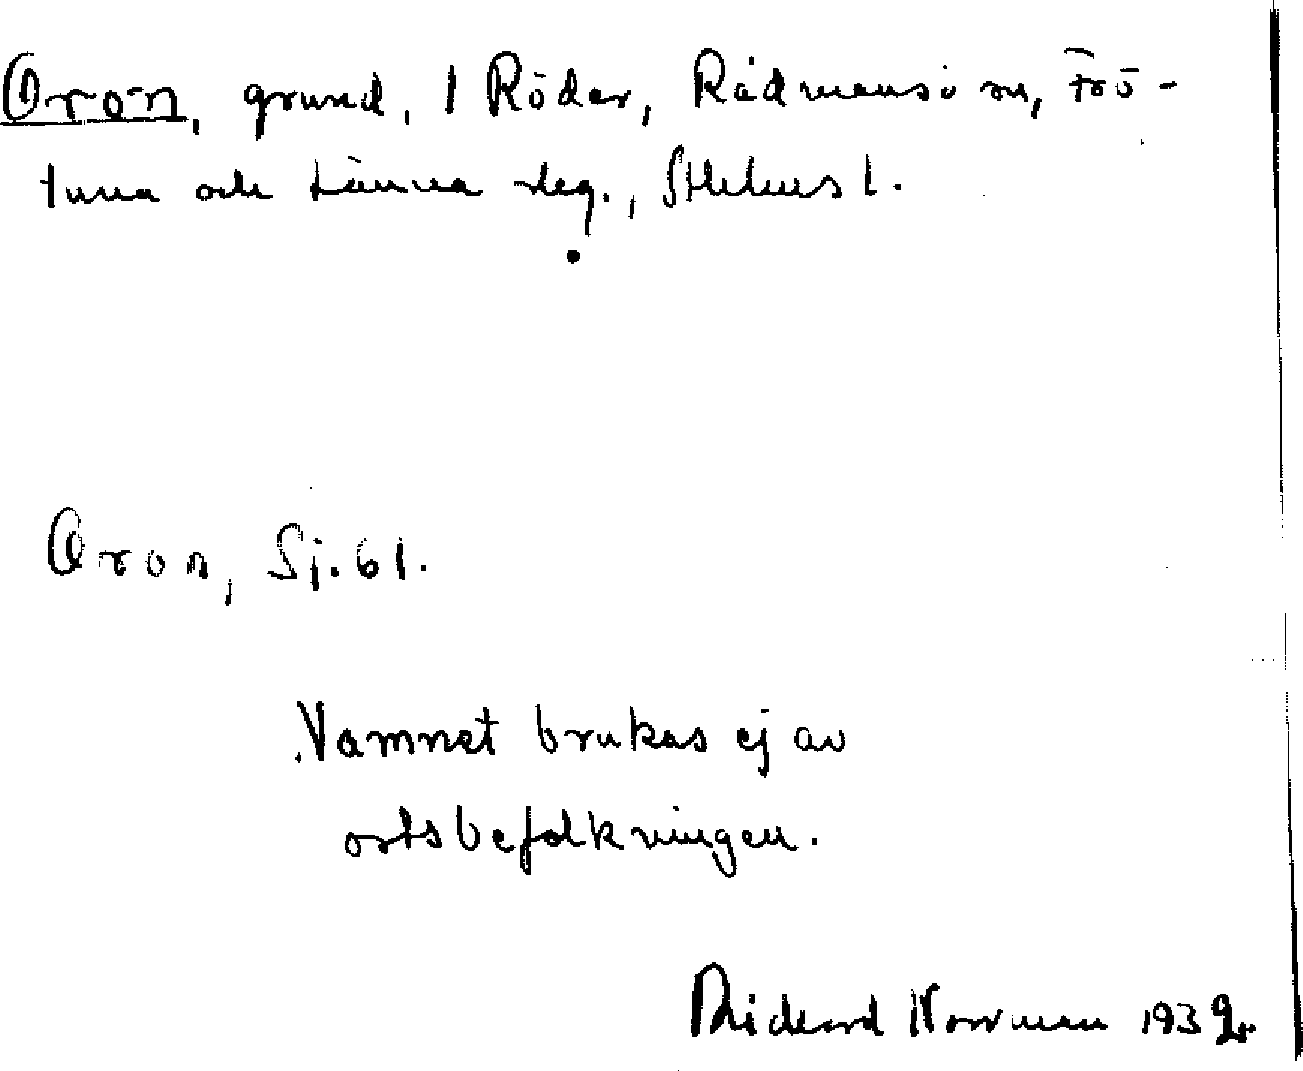 Oron, grund, I Röder, Rådmansö sn, Frö-
tuna och Länna slg., Sthlms l.
Oron, Sj. 61.
Namnet brukas ej av
ortsbefolkningen.
Rickard Norrman 1932